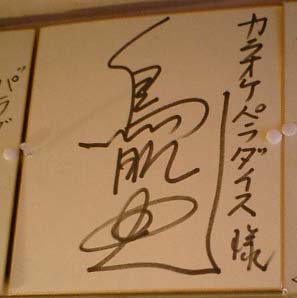 カラオケパラダイス様
鳥肌実
パラダ